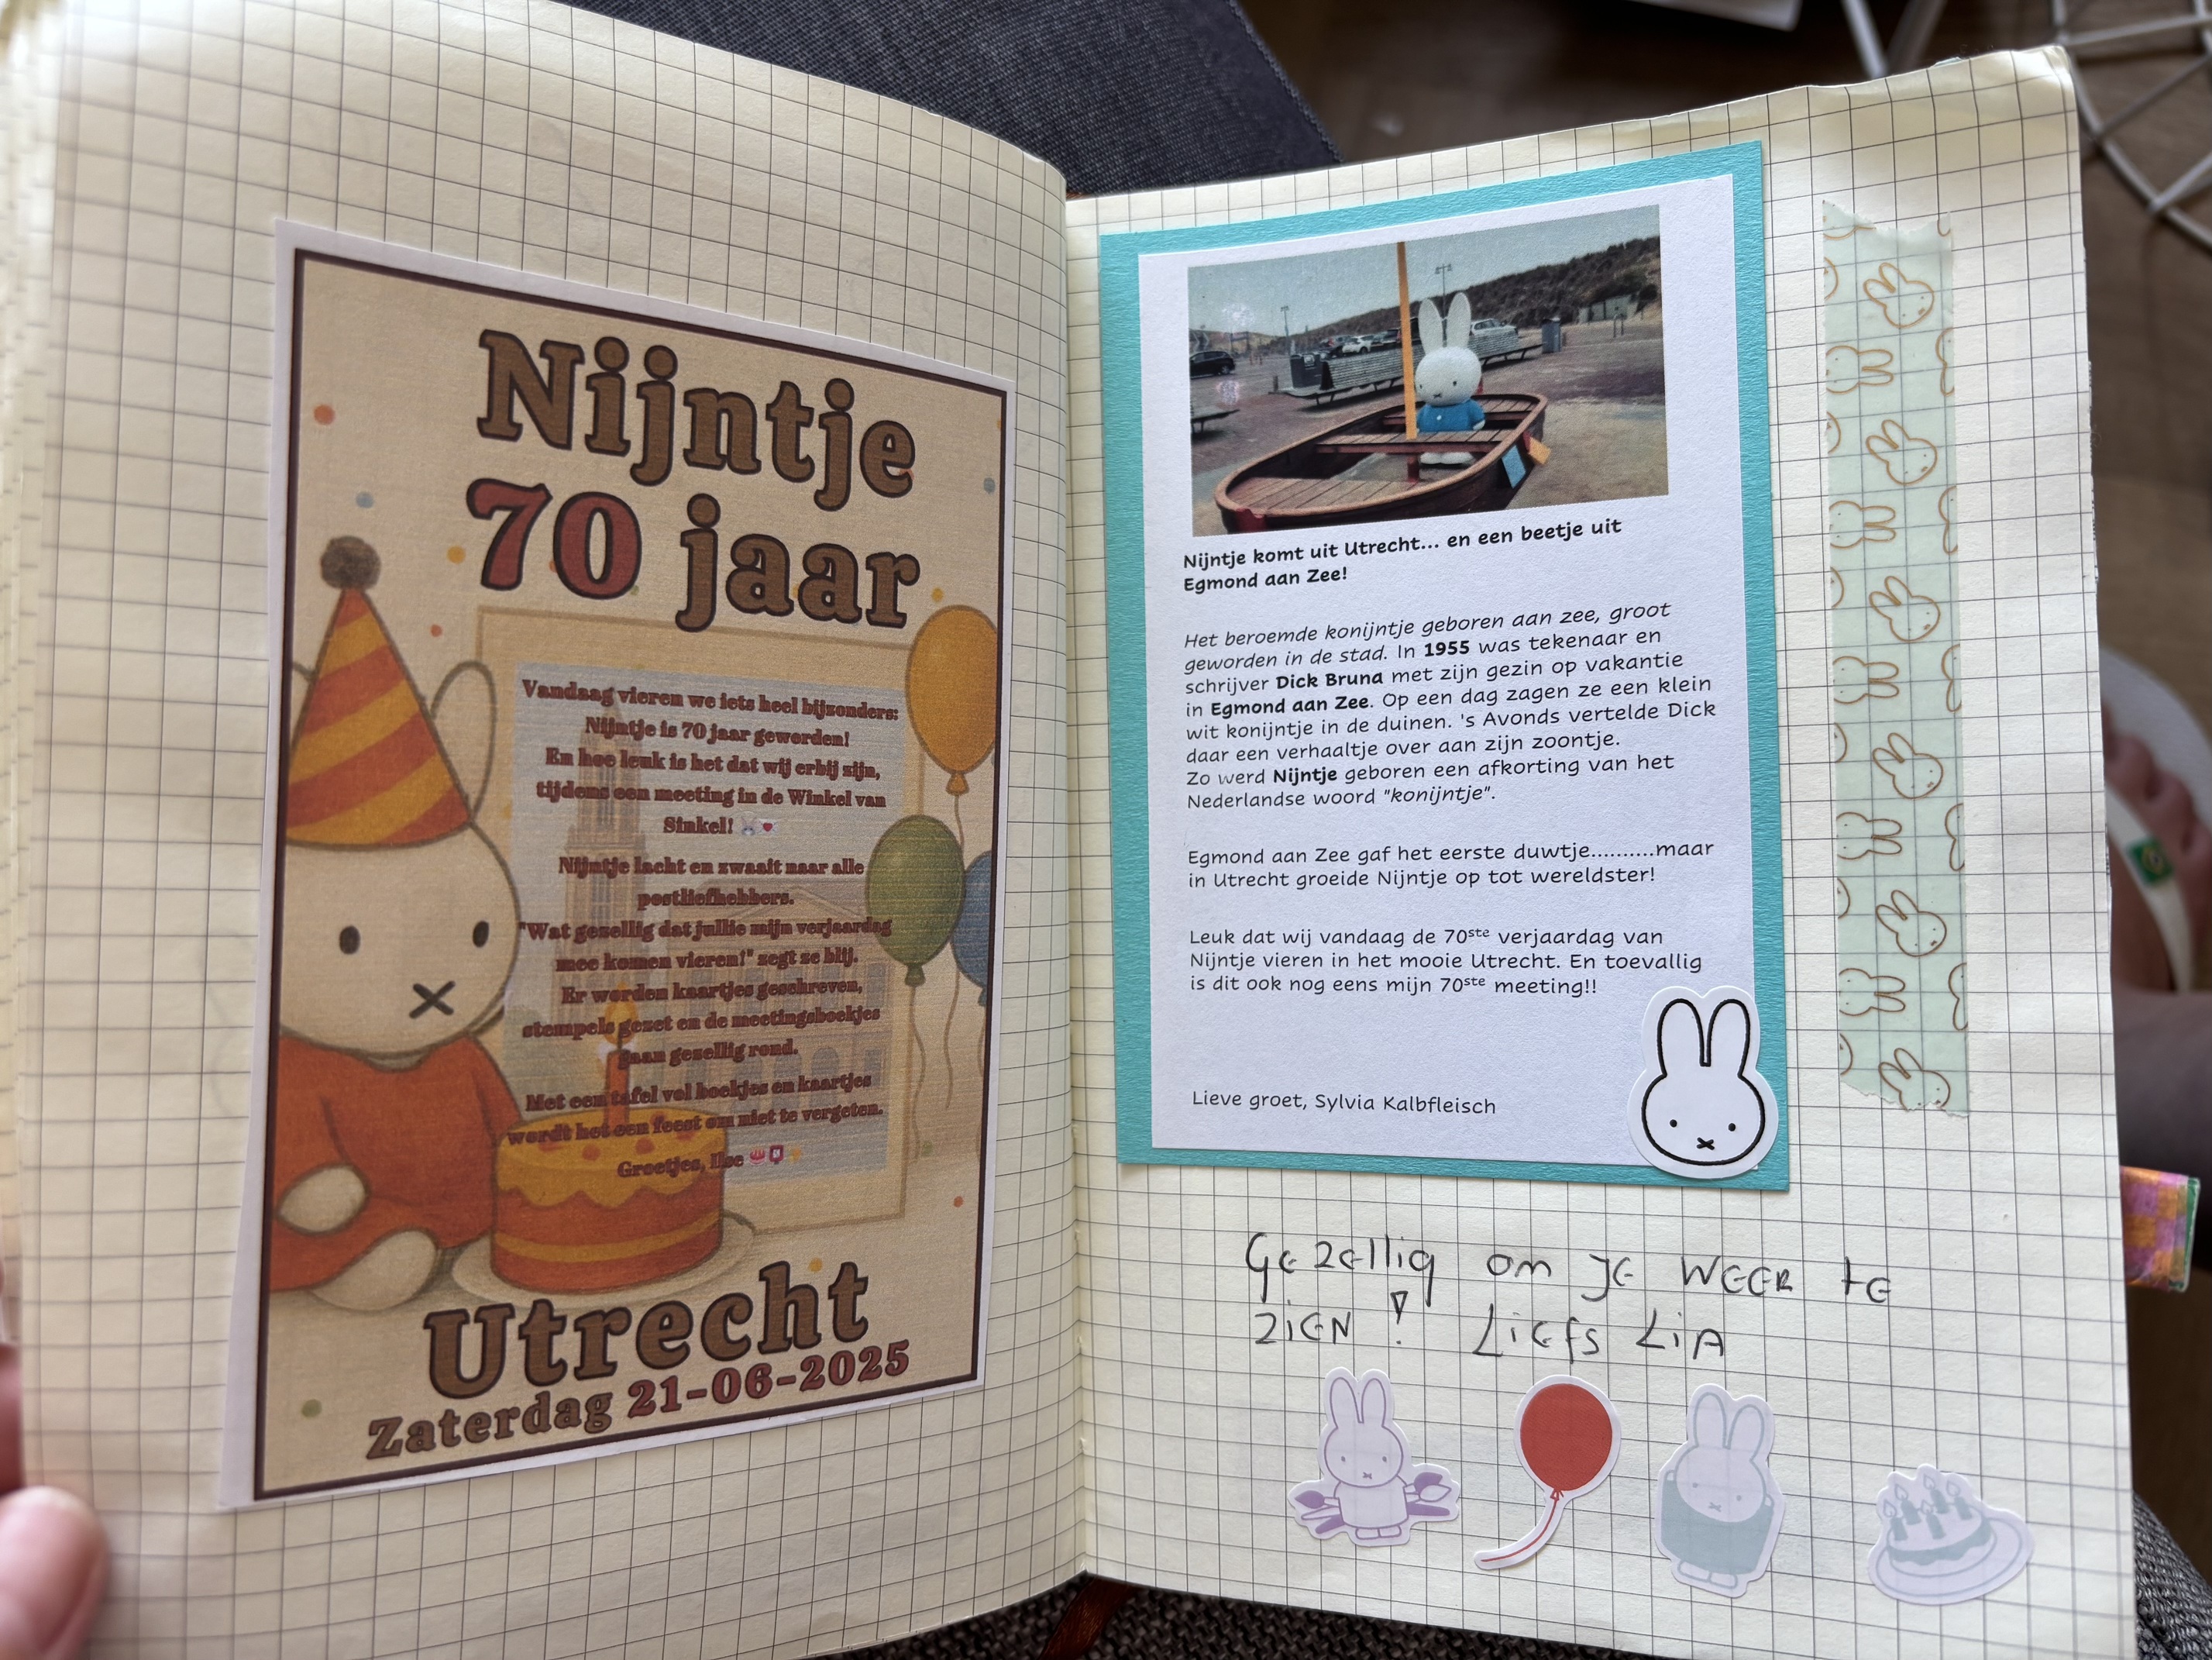 Nijntje
70 jaar
Vandaag vieren we iets heel bijzonders:
Nijntje is 70 jaar geworden!
En hoe leuk is het dat wij erbij zijn,
tijdens een meeting in de Winkel van
Sinkel!
Nijntje lacht en zwaait naar alle
postliefhebbers.
"Wat gezellig dat jullie mijn verjaardag
mee komen vieren!" zegt ze blij.
Er worden kaartjes geschreven,
stempels gezet en de meetingsboekjes
gaan gezellig rond.
Met een tafel vol boekjes en kaartjes
wordt het een feest om niet te vergeten.
Groetjes, Ilse
Utrecht
Zaterdag 21-06-2025
Nijntje komt uit Utrecht... en een beetje uit
Egmond aan Zee!
Het beroemde konijntje geboren aan zee, groot
geworden in de stad. In 1955 was tekenaar en
schrijver Dick Bruna met zijn gezin op vakantie
in Egmond aan Zee. Op een dag zagen ze een klein
wit konijntje in de duinen. 's Avonds vertelde Dick
daar een verhaaltje over aan zijn zoontje.
Zo werd Nijntje geboren een afkorting van het
Nederlandse woord "konijntje".
Egmond aan Zee gaf het eerste duwtje..........maar
in Utrecht groeide Nijntje op tot wereldster!
Leuk dat wij vandaag de 70ste verjaardag van
Nijntje vieren in het mooie Utrecht. En toevallig
is dit ook nog eens mijn 70ste meeting!!
Lieve groet, Sylvia Kalbfleisch
Gezellig om je weer te
zien! Liefs Lia